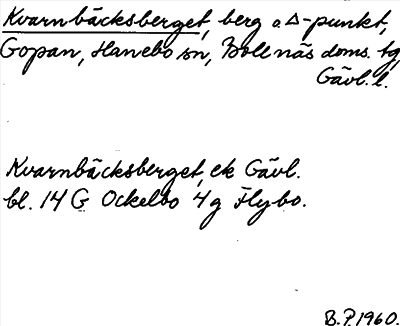 Kvarnbäcksberget, berg o Δ-punkt,
Gopan, Hanebo sn, Bollnäs doms. tg,
Gävl. l.
Kvarnbäcksberget, ek Gävl.
bl. 14 G Ockelbo 4 g Flybo.
B. P. 1960.